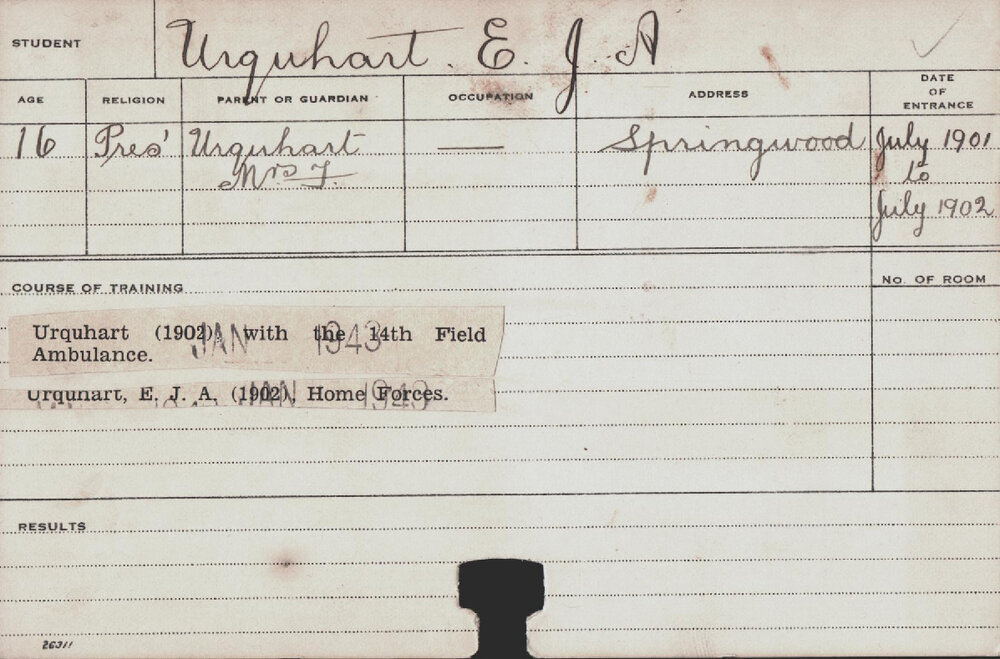 STUDENT Urquhart. E. J. A
AGE RELIGION PARENT OR GUARDIAN OCCUPATION ADDRESS DATE OF ENTRANCE
16 Pres' Urquhart — Springwood July 1901
Mrs F. to
July 1902
COURSE OF TRAINING No. OF ROOM
Urquhart (1902) with the 14th Field
JAN 1943
Ambulance.
Urqunart, E. J. A. (1902), Home Forces.
JAN 1943
RESULTS
26311